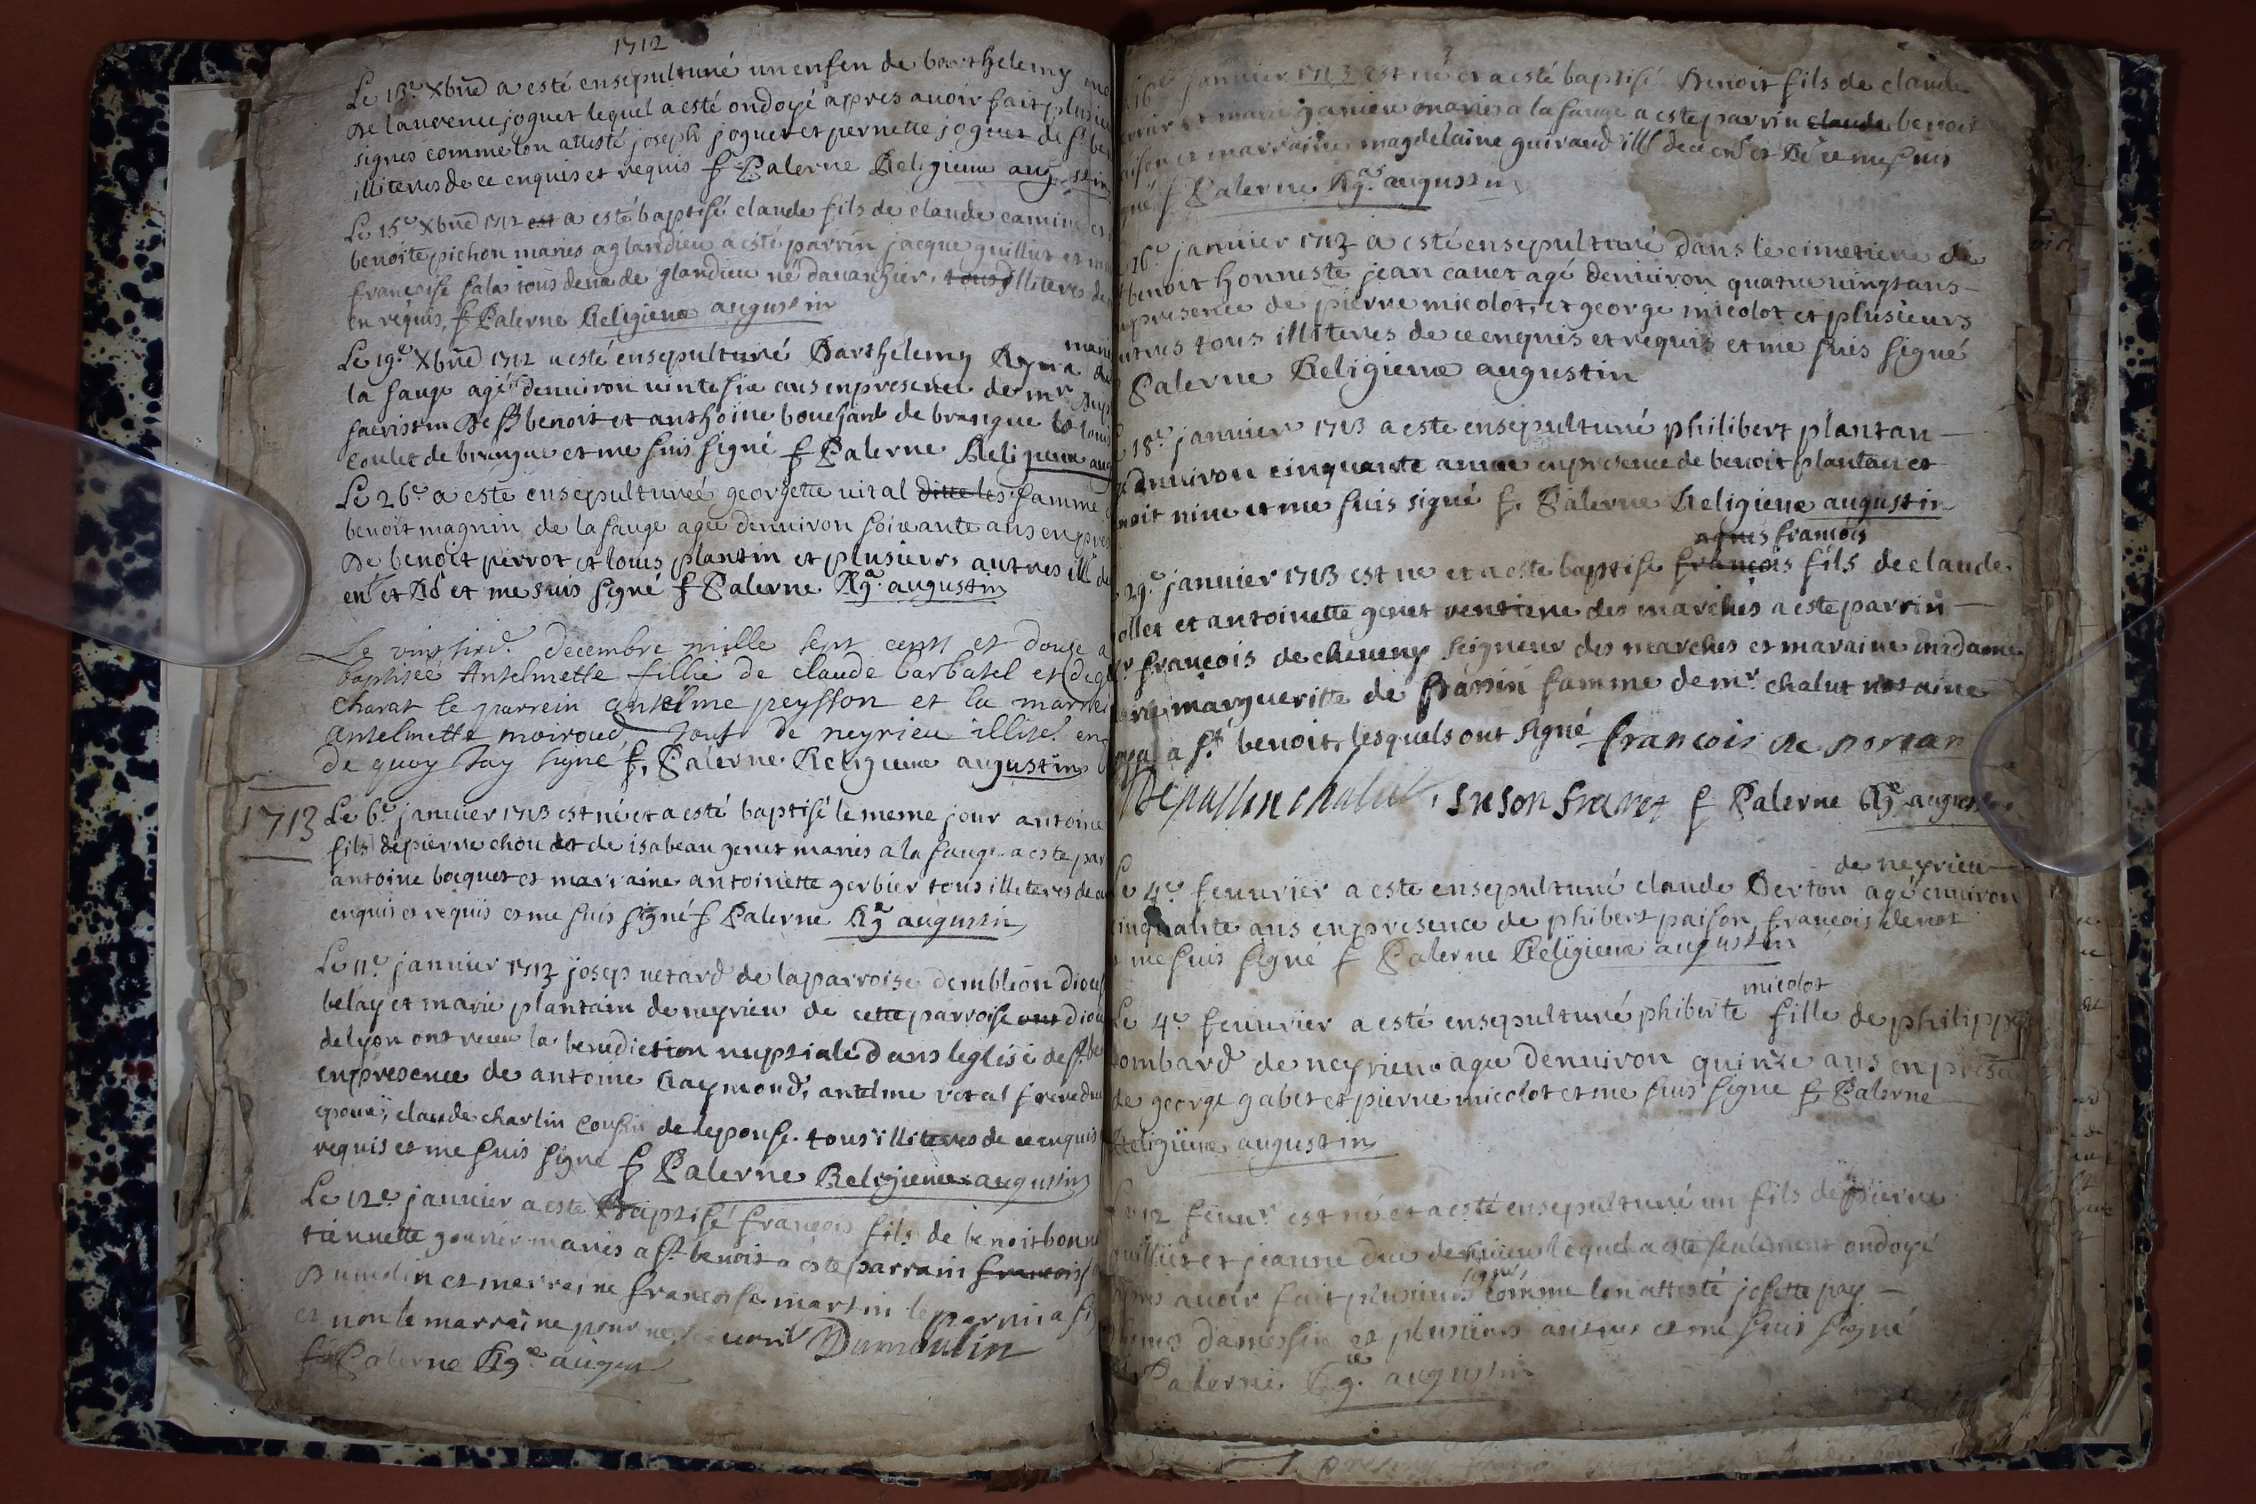 1712
Le 13e Xbre a esté ensepulturé un enfen de barthelemy
de laurence joquet lequel a esté ondoyé apres auoir fait plusieu
signes comme lon attesté joseph joquet et pernette joquet de st be
illiteres de ce enquis et requis f Palerne Religieux augustin
Le 15e Xbre 1712 est a esté baptisé claude fils de claude camin et
benoite pichon mariés a glandieu a esté parrin jacque guillut et
francoise sala tous deux de glandieu né dauanhier, tous illiteres de
en requis, f Palerne Religieux augustin
Le 19e Xbre 1712 a esté ensepulturé Barthelemy
la sauge agé denuiron uinte six ans en presence de mr
sacristin de st benoit et anthoine bouchard de brangue et louis
coulet de brangue et me suis signé f Palerne Religieux aug
Le 26e a este ensepulturéé georgette uital ditte les famme
benoit magnin de la sauge agee denuiron soixante ans en pres
De benoit perrot et louis plantin et plusieurs autres ill de
enr et Rd et me suis signé f Palerne Rgx augustin
Le vint sixe decembre mille sept cents et douse a
baptiseé Antelmette fillie de claude barbatel et de
charat le parrein antelme peysson et la marrei
antelmette moiroud tous de neyrieu illite. enq
de quoy jay signé f, Palerne Religieux augustin
1713 Le 6e januier 1713 est né et a esté baptisé le meme jour antoine
fils de pierre chou et de isabeau genet mariés a la sauge a este par
antoine bocquet et marraine antoinette gerbier tous illiteres de ce
enquis et requis et me suis signé f Palerne Rgx augustin
Le 11e januier 1713 josep netard de la parroise dembléon dioces
belay et marie plantain de neyrieu de cette parroise ont dio
de lyon ont receu la benediction nuptiale dans leglise de st be
en presence de antoine Raymond, antelme vital frere du
epoux, claude charlin cousin de lepouse. tous illiteres de ce enquis
requis et me suis signé f Palerne Religieux augustin
Le 12e januier a este Baptisé francois fils de benoit bonn
tiennette gonnier mariés a st benoit a este parrain francois
Dumolin et marreine francoise martin le parrin a si
et non la marraine pour ne scauoir Dumoulin
f Palerne Rgx augus
16e januier 1713 est né et a esté baptisé Benoit fils de claude
et marie ganieu mariés a la sauge a este parrin claude benoit
et marraine magdelaine guiraud ill de ce enr et Rd et me suis
gné f Palerne Rgx augustin
16e januier 1713 a esté ensepulturé dans le cimetiere de
benoit honneste jean cauet agé denuiron quatre uingt ans
presence de pierre micolot, et george micolot et plusieurs
utres tous illiteres de ce enquis et requis et me suis signé
Palerne Religieux augustin
18e januier 1713 a este ensepulturé philibert plantan
denuiron cinquante anne en presence de benoit plantan et
noit nine et me suis signé f. Palerne Religieux augustin
agnes francois
29e januier 1713 est ne et a este baptise francois fils de claude
ollet et antoinette genet rentiere des marches a este parrin
r francois de cheueny seigneur des marches et maraine madame
margueritte de passin famme de mr chalut notaire
a st benoit, lesquels ont signé francois de dortan
Depassin chalut, suson franet f Palerne Rgx augustin
de neyrieu
Le 4e feuurier a este ensepulturé claude Berton agé enuiron
inquante ans en presence de phibert paison, francois denot
me suis signé f Palerne Religieux augustin
micolot
Le 4e feuurier a esté ensepulturé phiberte fille de philippe
ombard de neyrieu agee denuiron quinze ans en prese
de george gabet et pierre micolot et me suis signe f, Palerne
Religieux augustin
Le 12 feuur est né et a esté ensepulturé un fils de pierre
guilliet et jeanne duc de lequel a este seulement ondoyé
signes
apres auoir fait plusieurs comme lon attesté josette pay
et plusieurs autres et me suis signé
Palerne Rgx. augustin